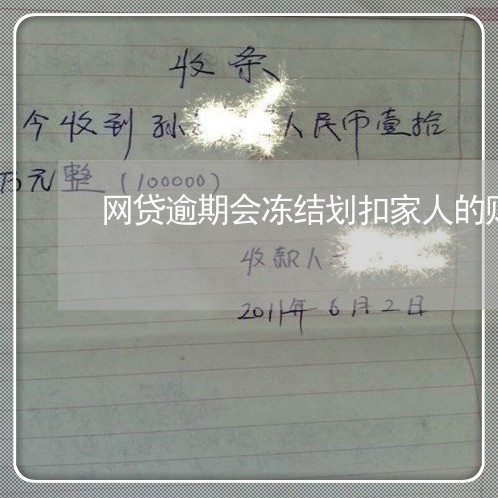 收条
今收到孙 人民币壹拾
万元整(100000)
网贷逾期会冻结划扣家人的
收款人
2011年6月2日